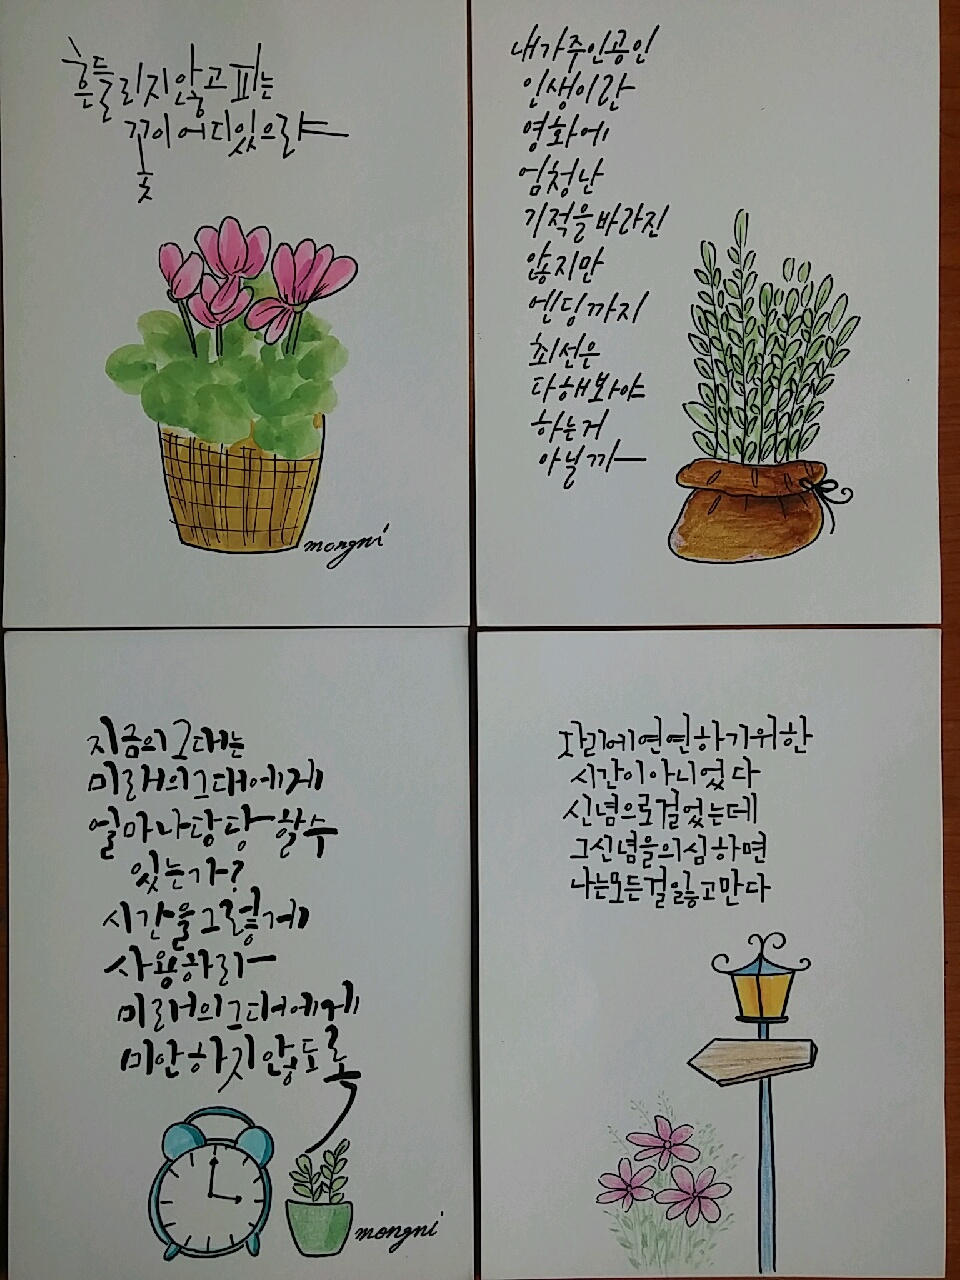 흔들리지않고피는
꽃이어디있으랴
mongni
내가주인공인
인생이란
영화에
엄청난
기적을바라진
않지만
엔딩까지
최선은
다해봐야
하는거
아닐까
지금의그대는
미래의그대에게
얼마나당당할수
있는가?
시간을그렇게
사용하라
미래의그대에게
미안하지않도록
mongni
자리에연연하기위한
시간이아니었다
신념으로걸었는데
그신념을의심하면
나는모든걸잃고만다